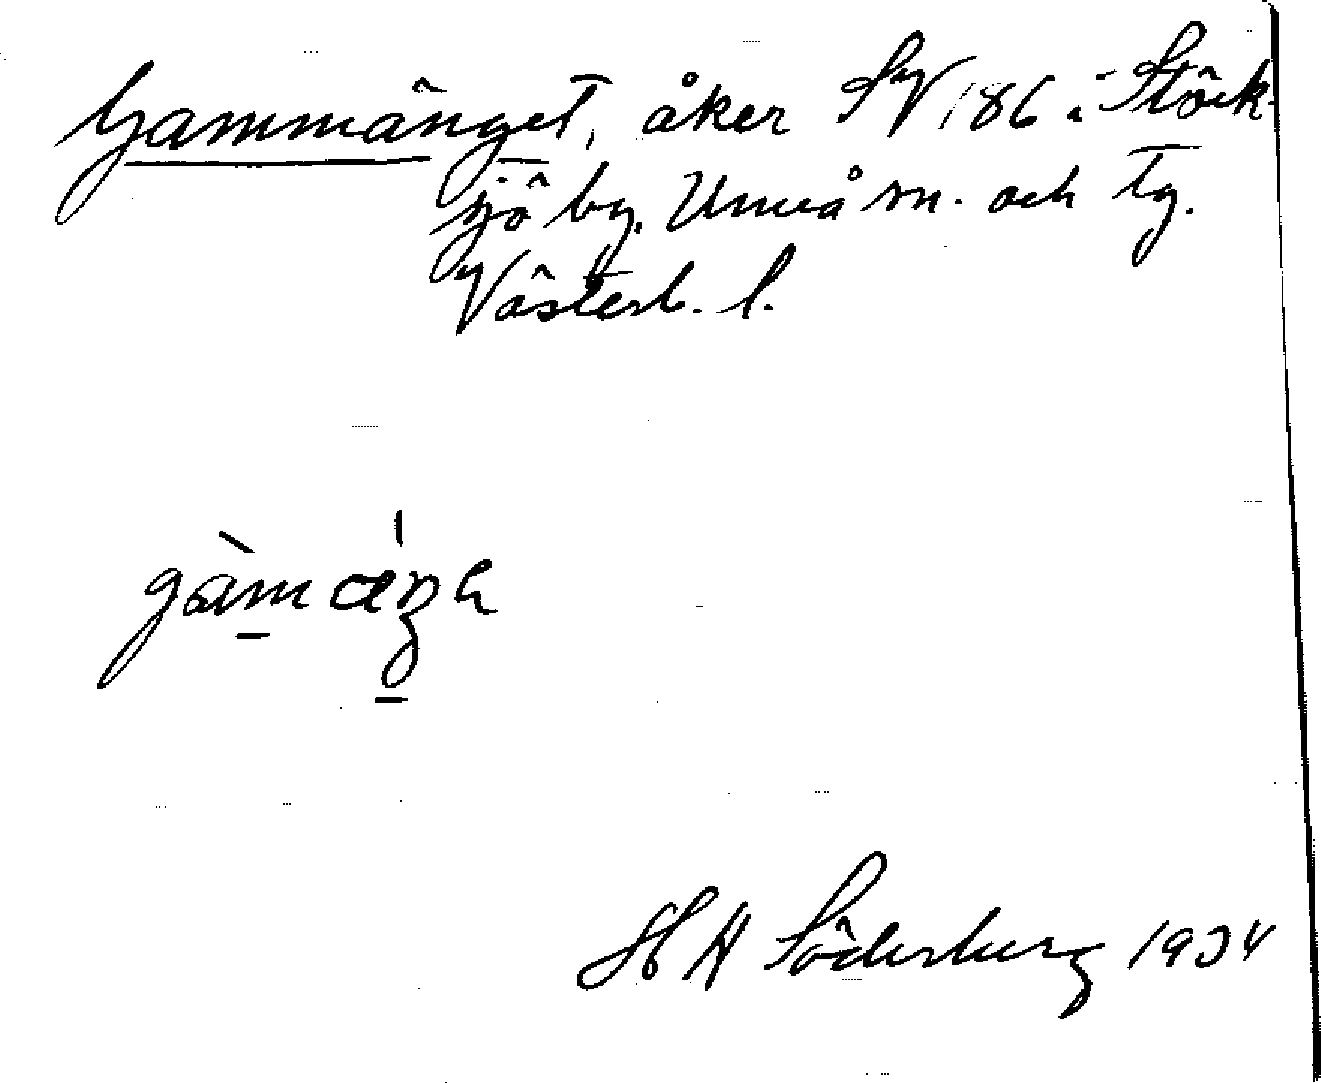 Gammänget, åker SV 186 i Stöck-
sjö by. Umeå sn. och tg.
Västerb. l.
gàmæ̀ŋɜ
H A Söderberg 1934